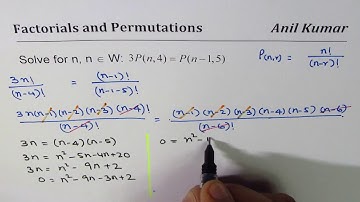 Factorials and Permutations
Anil Kumar
Solve for n, n ∈ W: 3P(n,4) = P(n−1,5)
P(n,r) = n! / (n−r)!
3n! / (n−4)! = (n−1)! / (n−1−5)!
3n(n−1)(n−2)(n−3)(n−4)! / (n−4)! = (n−1)(n−2)(n−3)(n−4)(n−5)(n−6)! / (n−6)!
3n = (n−4)(n−5)
3n = n²−5n−4n+20
3n = n²−9n+2
0 = n²−9n−3n+2
0 = n²−